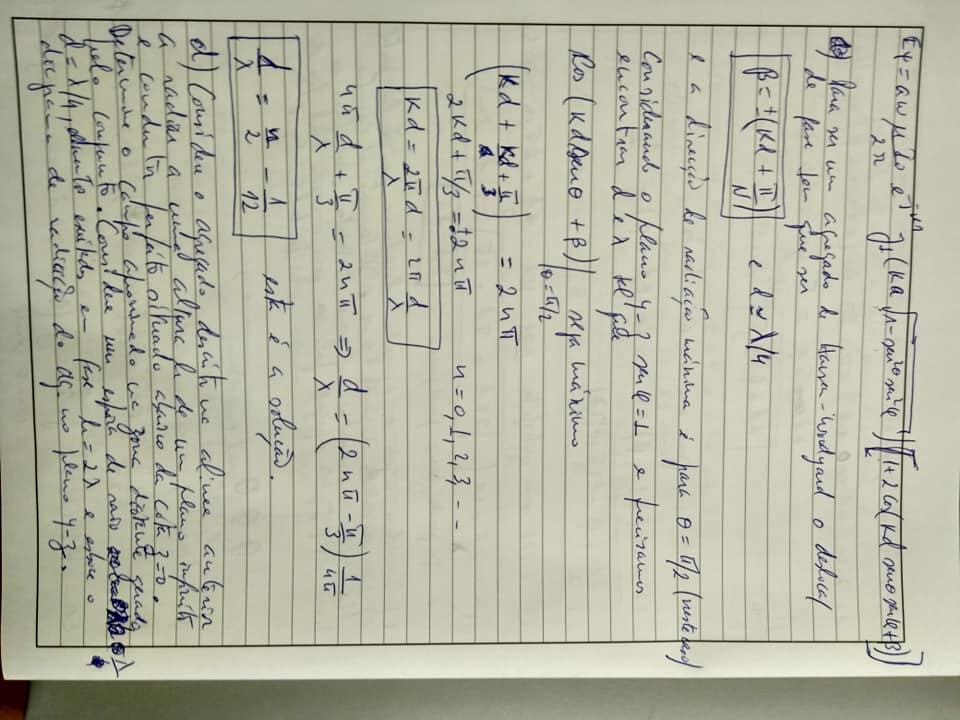 Eφ = aω μ I₀ e^{-jkr} / 2r J₁(ka √(1-sen²θ sen²φ)) [1+2 cos(kd senθ senφ+β)]
Para ser um agregado de Hansen-Woodyard o deslocaf
de fase tem que ser
β = ±(Kd + π/N) e d ≃ λ/4
e a direcção de radiação máxima é para θ = π/2 (neste caso)
Considerando o plano y-z senφ=1 e precisamos
encontrar d e λ tal que
Cos (Kd senθ + β)|θ=π/2 seja máximo
(Kd + Kd + π/3) = 2nπ
2Kd + π/3 = ±2nπ n = 0, 1, 2, 3, - - -
Kd = 2π/λ d = 2π d/λ
4π d/λ + π/3 = 2nπ ⇒ d/λ = (2nπ - π/3) 1/4π
d/λ = n/2 - 1/12 esta é a solução.
d) Considere o agregado descrito na alinea anterior
a radiar a uma altura h de um plano infinito
e condutor perfeito situado abaixo da cota z=0.
Determine o campo aproximado na zona distante gerado
pelo conjunto. Considere um espira de raio λ
d = λ/4, elemento exitados em fase h = 2λ e esboce o
diagrama de radiação do ag. no plano y-z.